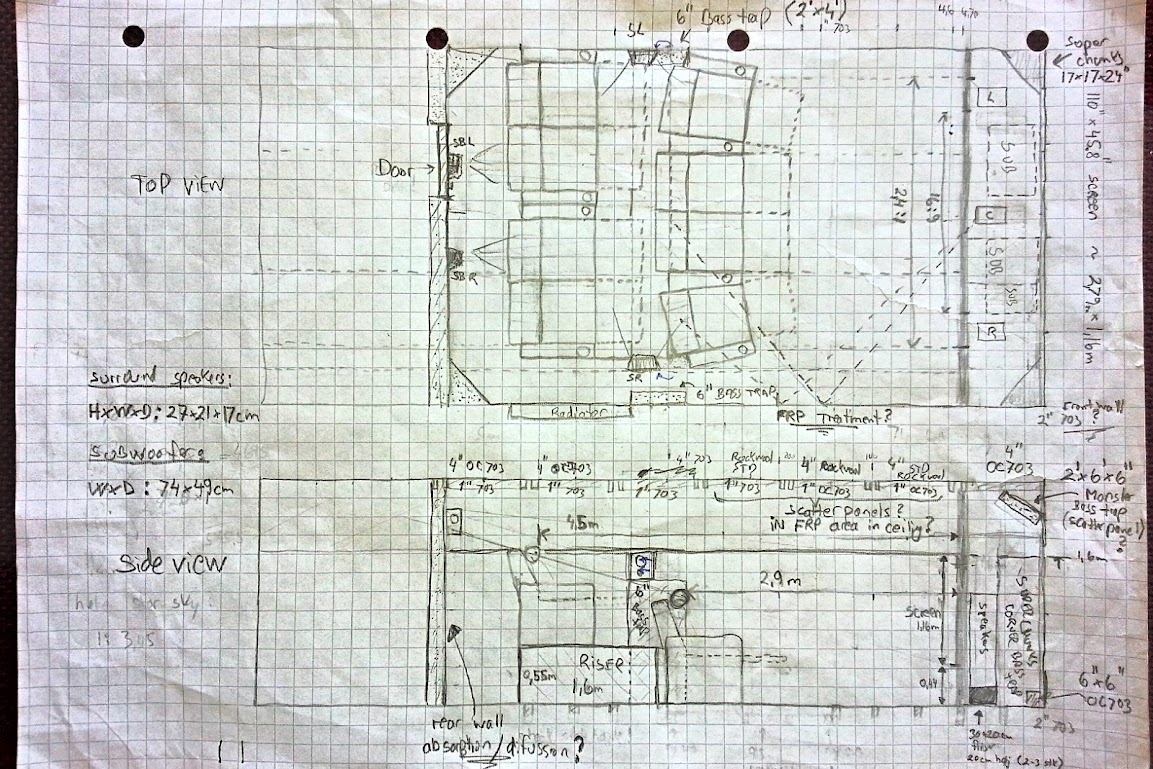 6" Bass trap (2'x4')
SL
1" 703
Super
chunks
17x17x24"
110" x 45,8" screen ~ 2,79m x 1,16m
L
SUB
C
SUB
SUB
R
16:9
2,4:1
SBL
Door
SBR
TOP VIEW
SR
6" BASS TRAP
Radiator
FRP Treatment?
Front wall
2" 703 ?
Surround speakers:
HxWxD: 27x21x17cm
Subwoofers
WxD: 74x49cm
4" OC703
4" OC703
4" 703
Rockwool
STD
4" Rockwool
4" STD
ROCKWOOL
4"
OC703
1" 703
1" 703
1" 703
1" 703
1" OC703
1" OC703
Scatter panels?
IN FRP area in ceiling?
2'x6'x6"
Monster
Bass trap
(scatter panel)
?
4,5m
2,9m
1,6m
Side VIEW
6"
BASS
TRAP
Screen
1,16m
0,44
speakers
SUPER CHUNKS
CORNER BASS
TRAP
RISER
0,55m
1,6m
6"x6"
OC703
2" 703
rear wall
absorption/difussion?
30x20cm
20cm høj (2-3 stk)